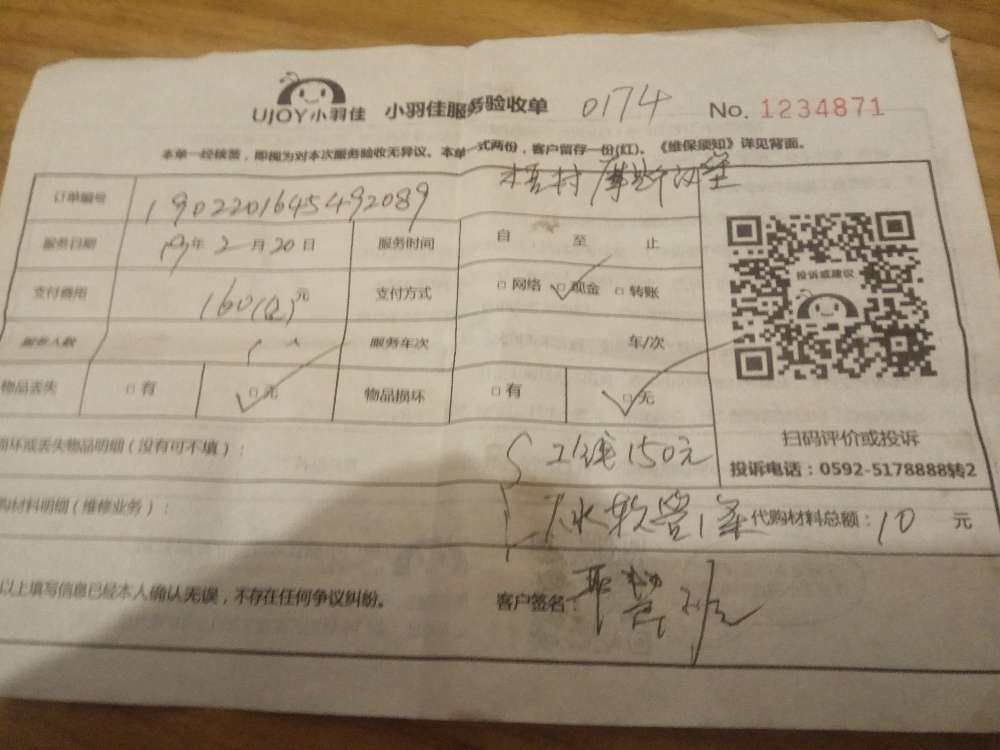 UJOY小羽佳 小羽佳服务验收单 0174 No. 1234871
本单一经核签，即视为对本次服务验收无异议。本单一式两份，客户留存一份(红)。《维保须知》详见背面。
订单编号 190220164549 2089 梧村
服务日期 19年 2月 20日 服务时间 自 至 止
支付费用 160 元 支付方式 □网络 □现金 □转账
服务人数 服务车次 车/次
物品丢失 □有 □无 物品损坏 □有 □无
投诉或建议
扫码评价或投诉
投诉电话：0592-5178888转2
损坏或丢失物品明细（没有可不填）： 工钱150元
购材料明细（维修业务）： 水软管1条 代购材料总额：10 元
以上填写信息已经本人确认无误，不存在任何争议纠纷。 客户签名：